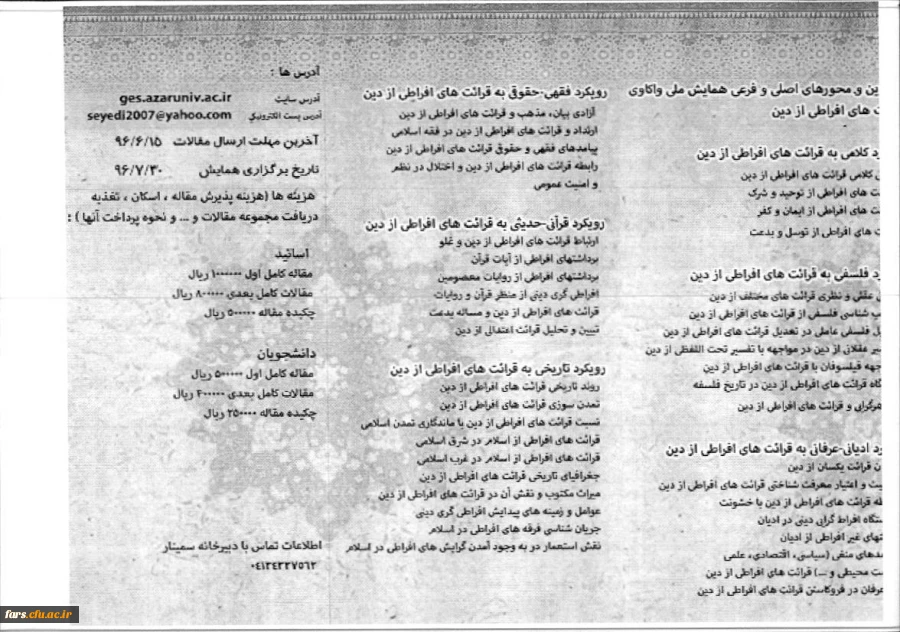 ین و محورهای اصلی و فرعی همایش ملی واکاوی
ت های افراطی از دین
د کلامی به قرائت های افراطی از دین
ل کلامی قرائت های افراطی از دین
ت های افراطی از توحید و شرک
ت های افراطی از ایمان و کفر
ت های افراطی از توسل و بدعت
د فلسفی به قرائت های افراطی از دین
عقلی و نظری قرائت های مختلف از دین
ب شناسی فلسفی از قرائت های افراطی از دین
ل فلسفی عاملی در تعدیل قرائت های افراطی از دین
یر عقلانی از دین در مواجهه با تفسیر تحت اللفظی از دین
جهه فیلسوفان با قرائت های افراطی از دین
گاه قرائت های افراطی از دین در تاریخ فلسفه
هرگرایی و قرائت های افراطی از دین
د ادیانی-عرفانی به قرائت های افراطی از دین
ن قرائت یکسان از دین
یت و اعتبار معرفت شناختی قرائت های افراطی از دین
طه قرائت های افراطی از دین با خشونت
ستگاه افراط گرایی دینی در ادیان
تهای غیر افراطی از ادیان
مدهای منفی (سیاسی، اقتصادی، علمی
ست محیطی و ...) قرائت های افراطی از دین
عرفان در فروکاستن قرائت های افراطی از دین
رویکرد فقهی-حقوقی به قرائت های افراطی از دین
آزادی بیان، مذهب و قرائت های افراطی از دین
ارتداد و قرائت های افراطی از دین در فقه اسلامی
پیامدهای فقهی و حقوق قرائت های افراطی از دین
رابطه قرائت های افراطی از دین و اختلال در نظم
و امنیت عمومی
رویکرد قرآنی-حدیثی به قرائت های افراطی از دین
ارتباط قرائت های افراطی از دین و غلو
برداشتهای افراطی از آیات قرآن
برداشتهای افراطی از روایات معصومین
افراطی گری دینی از منظر قرآن و روایات
قرائت های افراطی از دین و مساله بدعت
تبیین و تحلیل قرائت اعتدالی از دین
رویکرد تاریخی به قرائت های افراطی از دین
روند تاریخی قرائت های افراطی از دین
تمدن سوزی قرائت های افراطی از دین
نسبت قرائت های افراطی از دین با ماندگاری تمدن اسلامی
قرائت های افراطی از اسلام در شرق اسلامی
قرائت های افراطی از اسلام در غرب اسلامی
جغرافیای تاریخی قرائت های افراطی از دین
میراث مکتوب و نقش آن در قرائت های افراطی از دین
عوامل و زمینه های پیدایش افراطی گری دینی
جریان شناسی فرقه های افراطی در اسلام
نقش استعمار در به وجود آمدن گرایش های افراطی در اسلام
آدرس ها :
آدرس سایت ges.azaruniv.ac.ir
آدرس پست الکترونیکی seyedi2007@yahoo.com
آخرین مهلت ارسال مقالات ۹۶/۶/۱۵
تاریخ برگزاری همایش ۹۶/۷/۳۰
هزینه ها (هزینه پذیرش مقاله ، اسکان ، تغذیه
دریافت مجموعه مقالات و ... و نحوه پرداخت آنها ) :
اساتید
مقاله کامل اول ۱۰۰۰۰۰۰ ریال
مقالات کامل بعدی ۸۰۰۰۰۰ ریال
چکیده مقاله ۵۰۰۰۰۰ ریال
دانشجویان
مقاله کامل اول ۵۰۰۰۰۰ ریال
مقالات کامل بعدی ۴۰۰۰۰۰ ریال
چکیده مقاله ۲۵۰۰۰۰ ریال
اطلاعات تماس با دبیرخانه سمینار
۰۴۱۳۴۳۲۷۵۶۲
fars.cfu.ac.ir